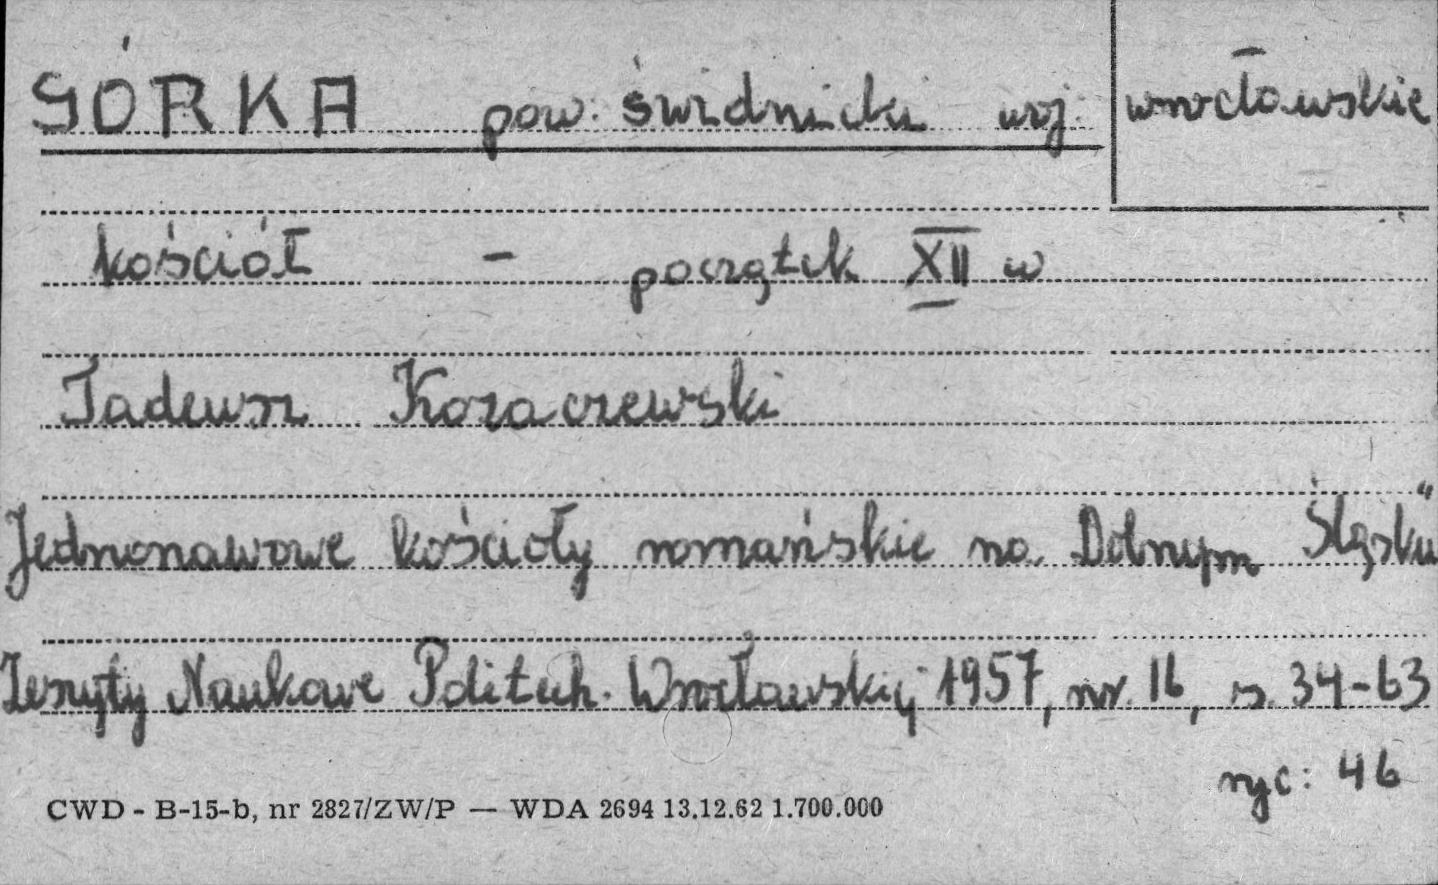 GÓRKA pow. świdnicki woj. wrocławskie
kościół - początek XII w
Tadeusz Kozaczewski
Jednonawowe kościoły romańskie na Dolnym Śląsku"
Zeszyty Naukowe Politech. Wrocławskiej 1957, nr. 16, s. 34-63
ryc: 46
CWD - B-15-b, nr 2827/ZW/P — WDA 2694 13.12.62 1.700.000